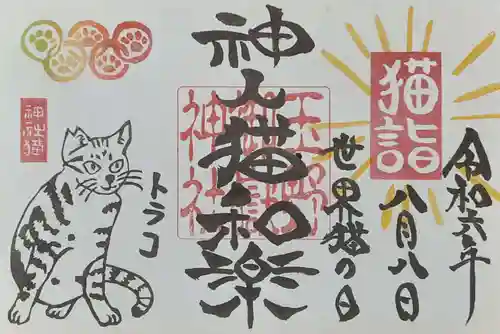 令和六年
八月八日
猫詣
世界猫の日
神人猫和楽
玉野御嶽神社
トラコ
神社猫